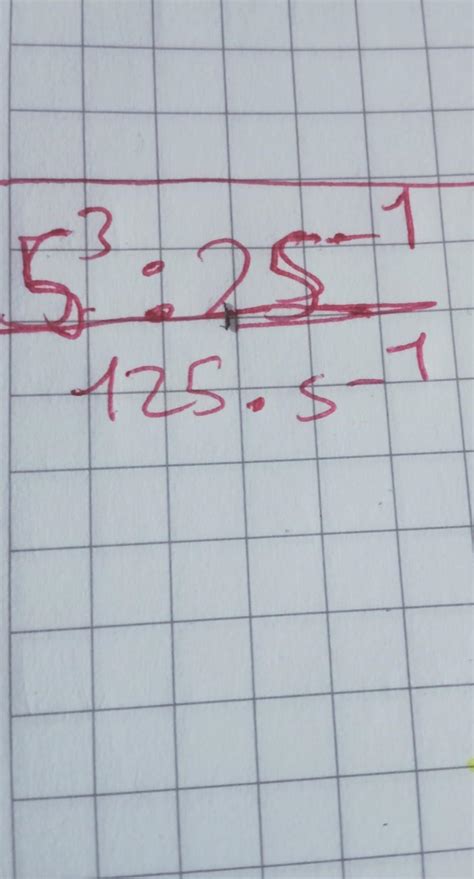 5³ : 25⁻¹
125 · 5⁻¹